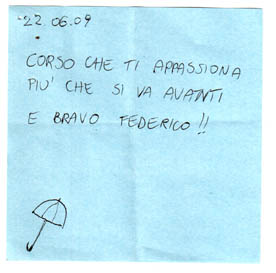 22.06.09
CORSO CHE TI APPASSIONA
PIU' CHE SI VA AVANTI
E BRAVO FEDERICO!!